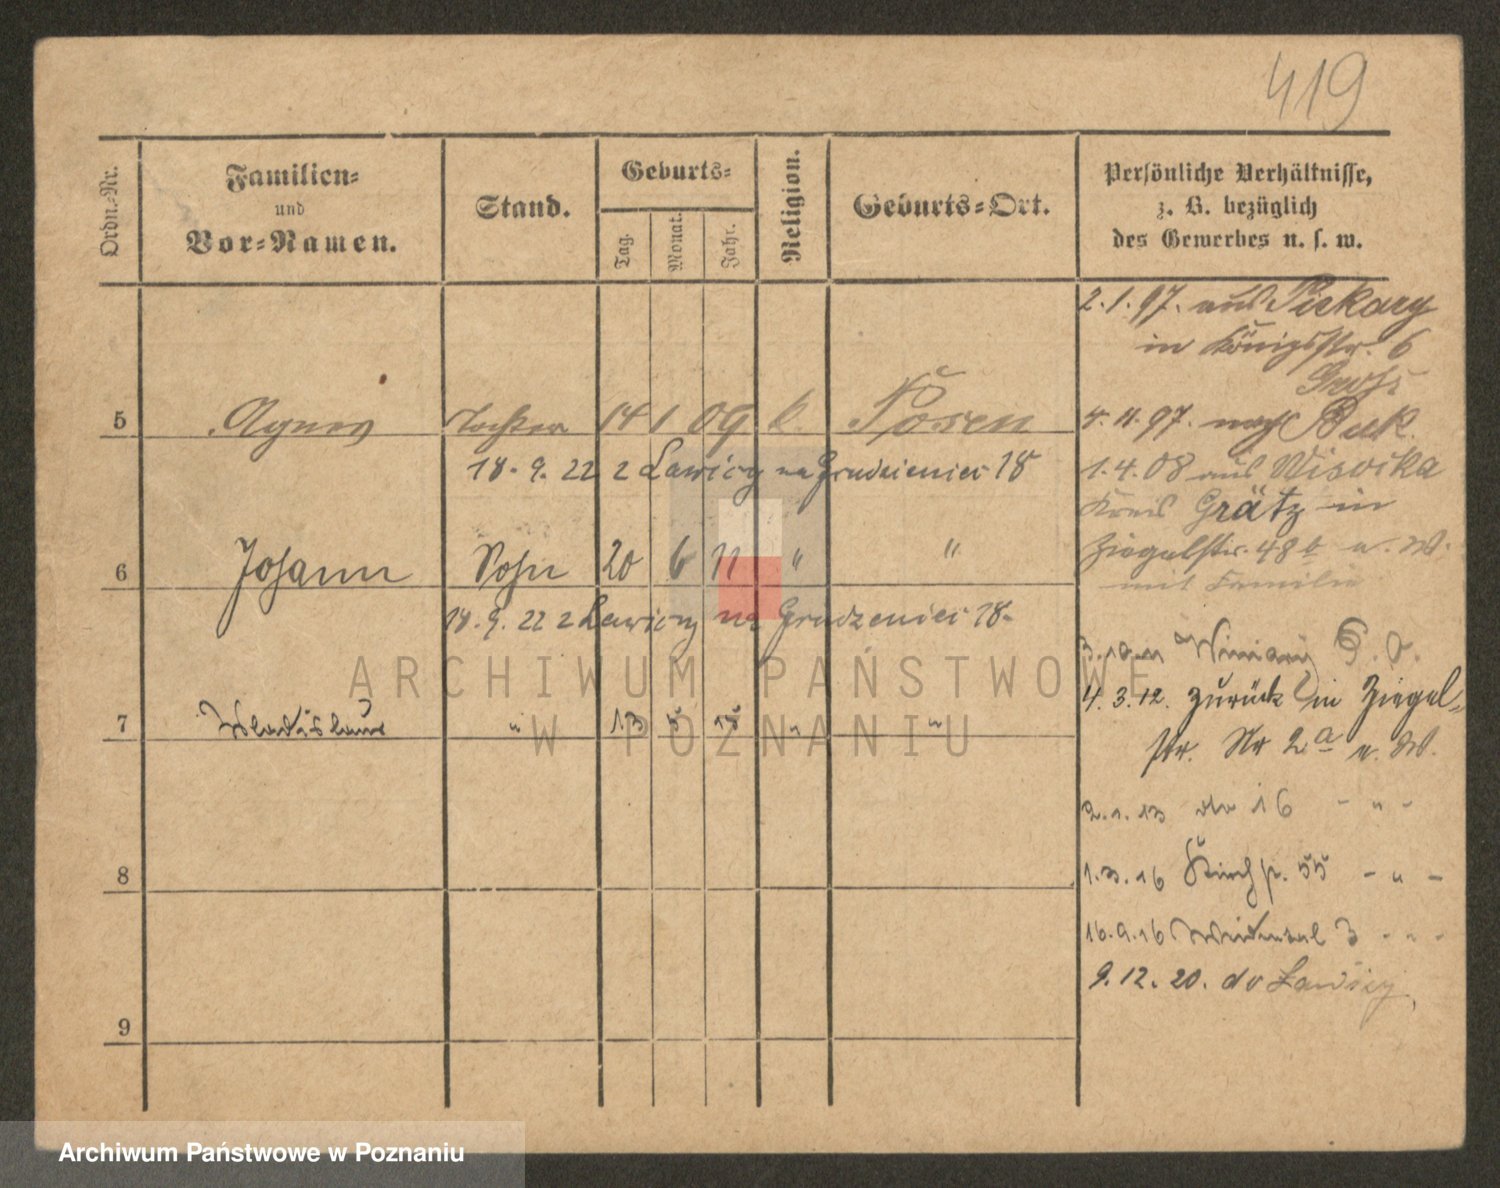 419
Ordn.-Nr.
Familien-
und
Vor-Namen.
Stand.
Geburts-
Tag.
Monat.
Jahr.
Religion.
Geburts-Ort.
Persönliche Verhältnisse,
z. B. bezüglich
des Gewerbes u. s. w.
2.1.97. aus Piekary
in Königsstr. 6
Gross
5 Agnes Tochter 14 1 09 k. Posen
4.11.97. nach Buk.
18. 9. 22 z Lawicy na Grudzieniec 18
1.4.08 aus
Kreis Grätz in
6 Johann Sohn 20 6 11 " "
Ziegelstr. 48 b u. W.
mit Familie
18. 9. 22 z Lawicy na Grudzieniec 18-
3.10.11 Winiary
4.3.12. zurück in Ziegel-
7 Wladislaus " 13 5 " "
str. Nr 2a u. W.
2.1.13 16 - " -
8
1.3.16 55 - " -
16.9.16 3 - " -
9.12.20. do Lawicy,
9
ARCHIWUM PAŃSTWOWE
W POZNANIU
Archiwum Państwowe w Poznaniu